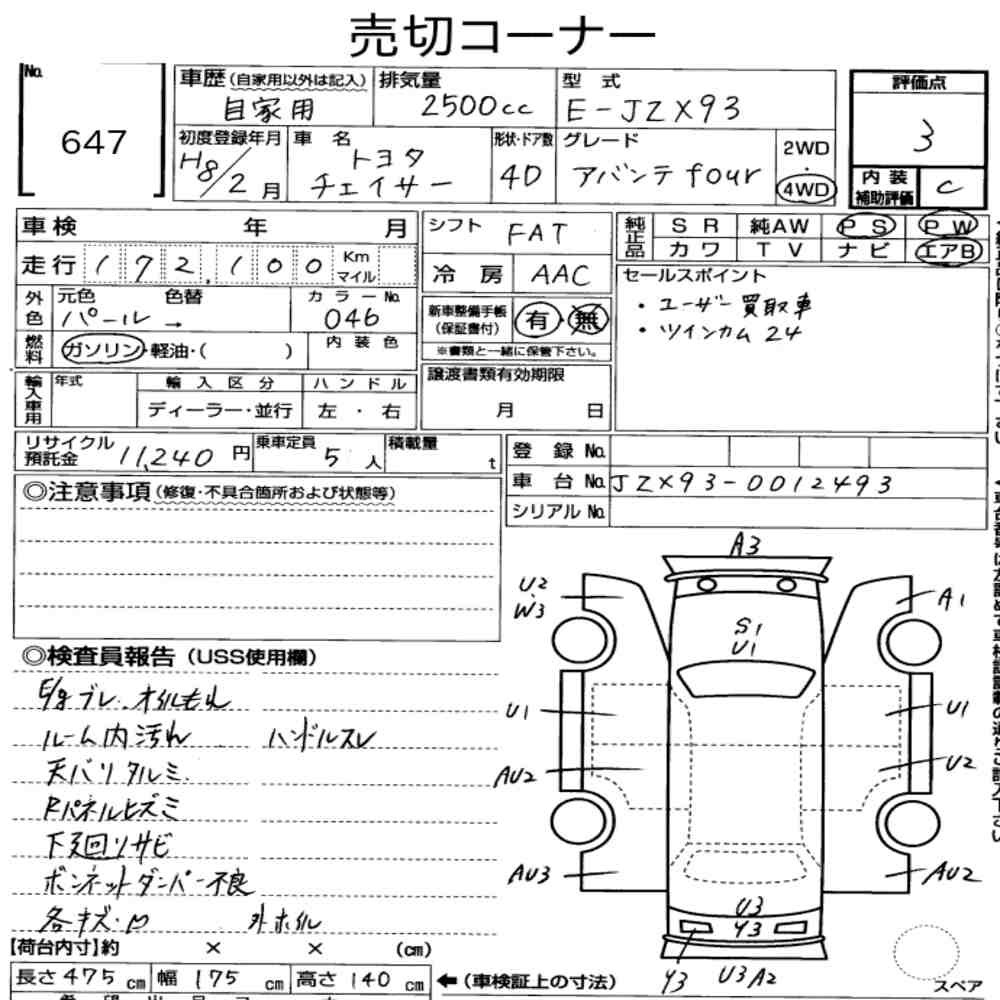 売切コーナー
No.
647
車歴(自家用以外は記入)
自家用
排気量
2500cc
型式
E-JZX93
評価点
3
内装補助評価
C
初度登録年月
H8/2月
車名
トヨタ
チェイサー
形状・ドア数
4D
グレード
アバンテfour
2WD
・
4WD
車検 年 月
走行 172,100 Km マイル
シフト
FAT
冷房
AAC
純正品
SR 純AW PS PW
カワ TV ナビ エアB
セールスポイント
・ユーザー買取車
・ツインカム24
外色
元色 色替
パール→
カラーNo.
046
燃料
ガソリン・軽油・( )
内装色
新車整備手帳(保証書付)
有・無
※書類と一緒に保管下さい。
輸入車用
年式
輸入区分
ディーラー・並行
ハンドル
左・右
譲渡書類有効期限
月 日
リサイクル預託金 11,240円
乗車定員 5人
積載量 t
登録No.
車台No. JZX93-0012493
シリアルNo.
◎注意事項(修復・不具合箇所および状態等)
◎検査員報告(USS使用欄)
E/gブレ、オイルもれ
ルーム内汚れ ハンドルスレ
天バリタルミ
Rパネルヒズミ
下廻リサビ
ボンネットダンパー不良
各キズ・凹 外ホイル
A3
U2
W3
A1
S1
U1
U1
U1
AU2
U2
AU3
AU2
U3
Y3
Y3
U3A2
スペア
【荷台内寸】約 × × (cm)
長さ475cm 幅175cm 高さ140cm
←(車検証上の寸法)